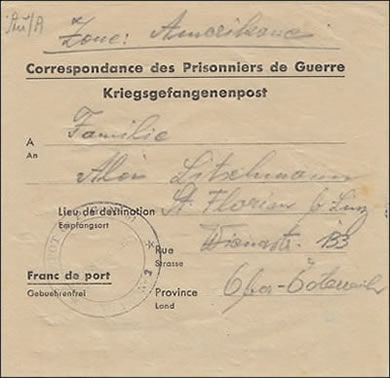 Zone: Amerikana
Correspondance des Prisonniers de Guerre
Kriegsgefangenenpost
A Familie
An
Alois Litschmann
Lieu de destination St. Florian b. Linz
Empfangsort
Rue Wienerstr. 133
Strasse
Franc de port
Gebuehrenfrei
Province Ober-Österreich
Land